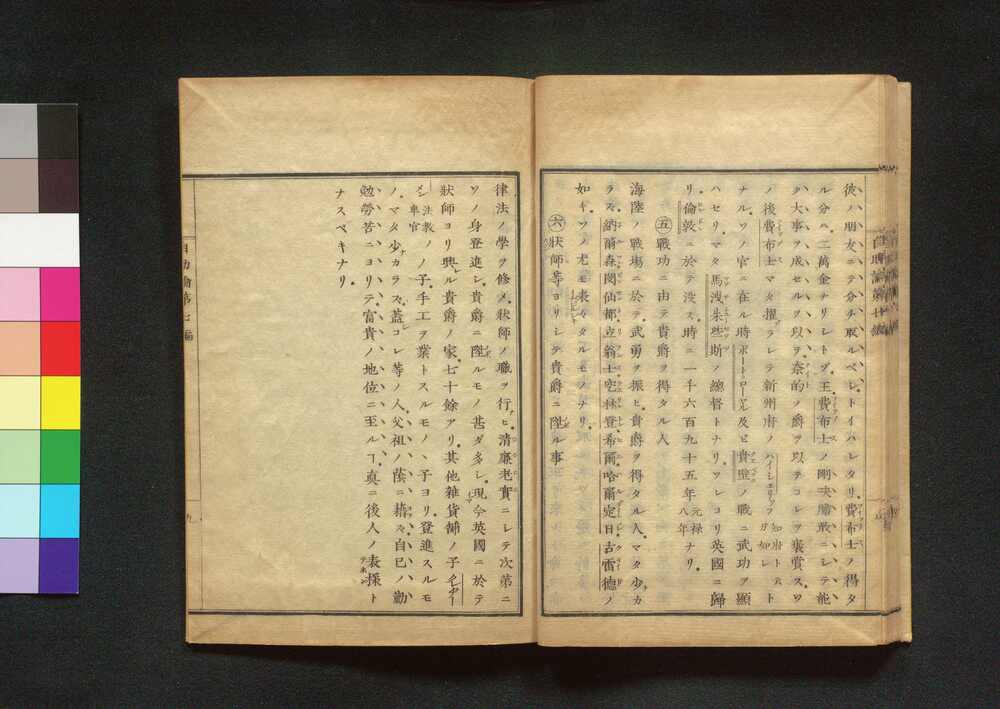 彼ハ朋友ニテ分チ取ルベシトイハレタリ費布士ノ得タ
ル分ハ二萬金ナリシトゾ王費布士ノ剛決膽敢ニシテ能
ク大事ヲ成セルヲ以ヲ奈的ノ爵ヲ以テコレヲ褒賞スソ
ノ後費布士マタ擢ラレテ新州府ノハイシェリッフ知府ト云ガ如シト
ナルソノ官ニ在ル時ポートローヤル及ビ貴壁ノ戰ニ武功ヲ顯
ハセリマタ馬洩朱些斯ノ總督トナリソレヨリ英國ニ歸
リ倫敦ニ於テ沒ス時ニ一千六百九十五年元禄八年ナリ
五 戰功ニ由テ貴爵ヲ得タル人
海陸ノ戰場ニ於テ武勇ヲ振ヒ貴爵ヲ得タル人マタ少カ
ラズ納爾森閔仙都立翁士空林登希爾哈爾定日古雷德ノ
如キソノ尤モ表々タルモノナリ
六 狀師等ヨリシテ貴爵ニ陞ル事
律法ノ學ヲ修メ狀師ノ職ヲ行ヒ清廉老實ニシテ次第ニ
ソノ身登進シ貴爵ニ陞ルモノ甚ダ多シ現今英國ニ於テ
狀師ヨリ興ル貴爵ノ家七十餘アリ其他雜貨舖ノ子
法教ノ子手工ヲ業トスルモノヽ子ヨリ登進スルモ
ノマタ少カラズ蓋コレ等ノ人父祖ノ蔭ニ藉ズ自己ノ勤
勉勞苦ニヨリテ富貴ノ地位ニ至ルヿ真ニ後人ノ表揉ト
ナスベキナリ